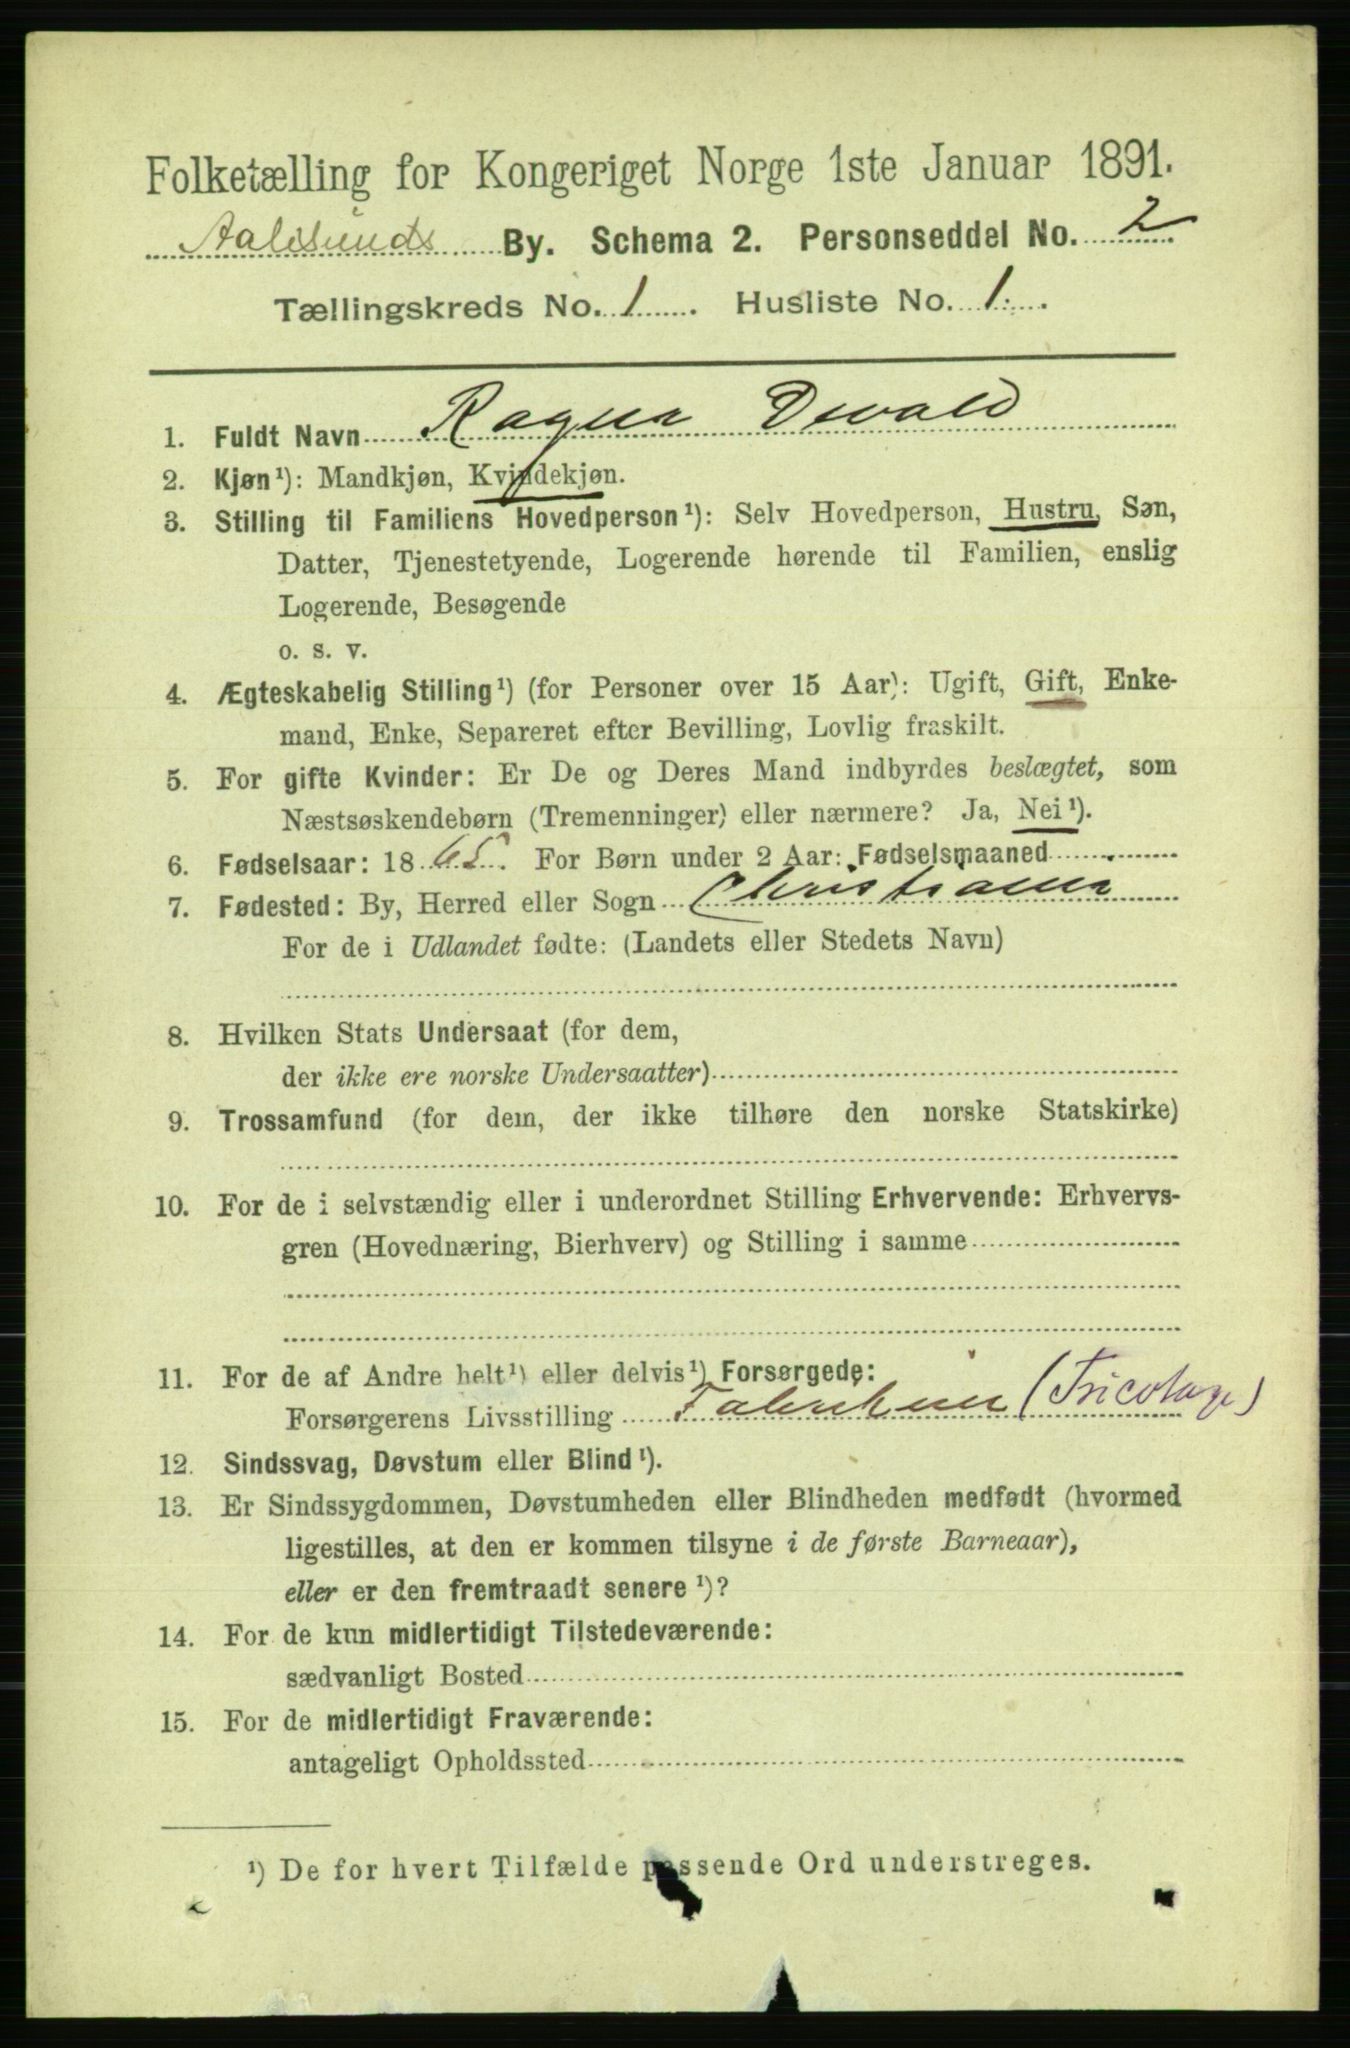 Folketælling for Kongeriget Norge 1ste Januar 1891.
Aalesunds By. Schema 2. Personseddel No. 2
Tællingskreds No. 1. Husliste No. 1.
1. Fuldt Navn Ragna Devold
2. Kjøn¹): Mandkjøn, Kvindekjøn.
3. Stilling til Familiens Hovedperson¹): Selv Hovedperson, Hustru, Søn,
Datter, Tjenestetyende, Logerende hørende til Familien, enslig
Logerende, Besøgende
o. s. v.
4. Ægteskabelig Stilling¹) (for Personer over 15 Aar): Ugift, Gift, Enke-
mand, Enke, Separeret efter Bevilling, Lovlig fraskilt.
5. For gifte Kvinder: Er De og Deres Mand indbyrdes beslægtet, som
Næstsøskendebørn (Tremenninger) eller nærmere? Ja, Nei¹).
6. Fødselsaar: 1865. For Børn under 2 Aar: Fødselsmaaned
7. Fødested: By, Herred eller Sogn Christiania
For de i Udlandet fødte: (Landets eller Stedets Navn)
8. Hvilken Stats Undersaat (for dem,
der ikke ere norske Undersaatter)
9. Trossamfund (for dem, der ikke tilhøre den norske Statskirke)
10. For de i selvstændig eller i underordnet Stilling Erhvervende: Erhvervs-
gren (Hovednæring, Bierhverv) og Stilling i samme
11. For de af Andre helt¹) eller delvis¹) Forsørgede:
Forsørgerens Livsstilling Fabrikeier (Tricotage)
12. Sindssvag, Døvstum eller Blind¹).
13. Er Sindssygdommen, Døvstumheden eller Blindheden medfødt (hvormed
ligestilles, at den er kommen tilsyne i de første Barneaar),
eller er den fremtraadt senere¹)?
14. For de kun midlertidigt Tilstedeværende:
sædvanligt Bosted
15. For de midlertidigt Fraværende:
antageligt Opholdssted
¹) De for hvert Tilfælde passende Ord understreges.